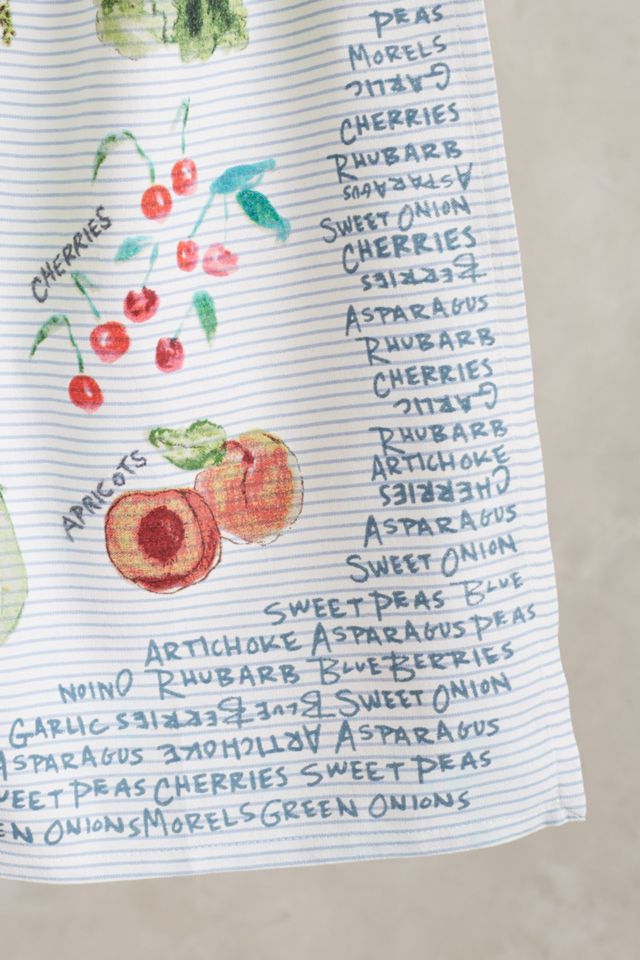 PEAS
MORELS
GARLIC
CHERRIES
RHUBARB
ASPARAGUS
SWEET ONION
CHERRIES
BERRIES
ASPARAGUS
RHUBARB
CHERRIES
GARLIC
RHUBARB
ARTICHOKE
CHERRIES
ASPARAGUS
SWEET ONION
SWEET PEAS BLUE
ARTICHOKE ASPARAGUS PEAS
ONION RHUBARB BLUEBERRIES
GARLIC BLUE BERRIES SWEET ONION
ASPARAGUS ARTICHOKE ASPARAGUS
WEET PEAS CHERRIES SWEET PEAS
EN ONIONS MORELS GREEN ONIONS
CHERRIES
APRICOTS